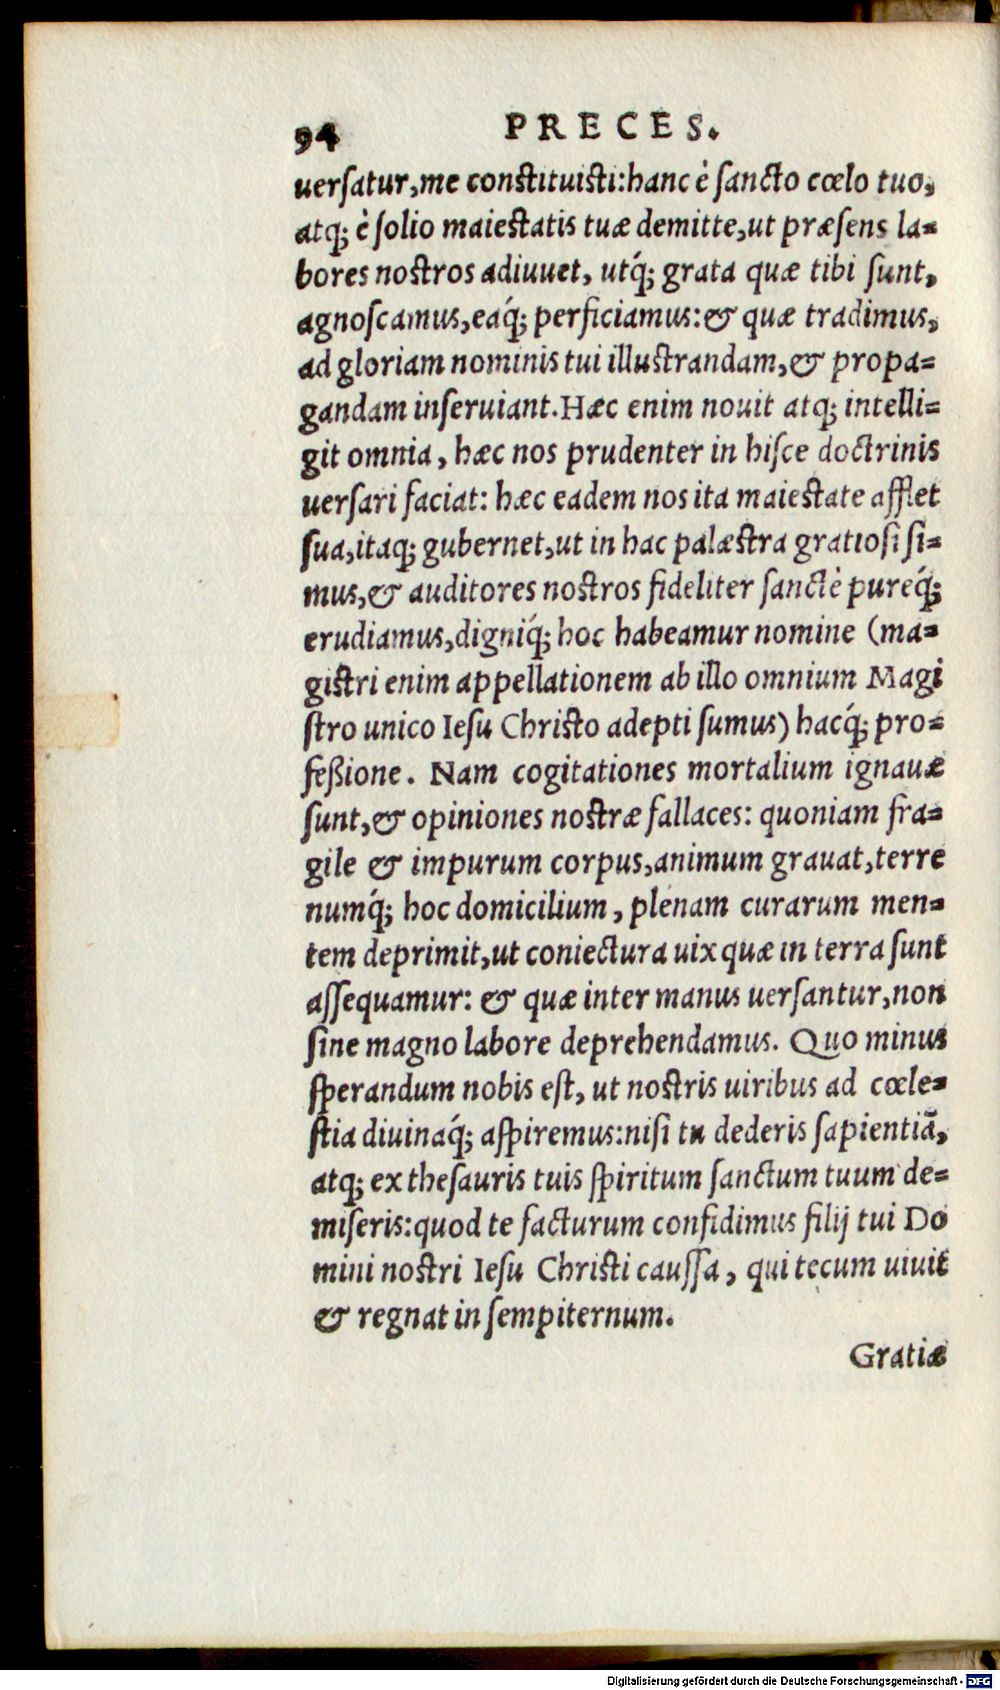 94 PRECES.
uerſatur,me conſtituiſti:hanc è ſancto cœlo tuo,
atq; è ſolio maieſtatis tuæ demitte,ut præſens la-
bores noſtros adiuuet, utq́; grata quæ tibi ſunt,
agnoſcamus,eaq́; perficiamus:& quæ tradimus,
ad gloriam nominis tui illuſtrandam,& propa-
gandam inſeruiant.Hæc enim nouit atq; intelli-
git omnia, hæc nos prudenter in hiſce doctrinis
uerſari faciat: hæc eadem nos ita maieſtate afflet
ſua,itaq; gubernet,ut in hac palæſtra gratioſi ſi-
mus,& auditores noſtros fideliter ſanctè pureq́;
erudiamus,digniq́; hoc habeamur nomine (ma-
giſtri enim appellationem ab illo omnium Magi
ſtro unico Ieſu Chriſto adepti ſumus) hacq́; pro-
feßione. Nam cogitationes mortalium ignauæ
ſunt,& opiniones noſtræ fallaces: quoniam fra-
gile & impurum corpus,animum grauat,terre
numq́; hoc domicilium, plenam curarum men-
tem deprimit,ut coniectura uix quæ in terra ſunt
aſſequamur: & quæ inter manus uerſantur,non
ſine magno labore deprehendamus. Quo minus
ſperandum nobis eſt, ut noſtris uiribus ad cœle-
ſtia diuinaq́; aſpiremus:niſi tu dederis ſapientiā,
atq; ex theſauris tuis ſpiritum ſanctum tuum de-
miſeris:quod te facturum confidimus filij tui Do
mini noſtri Ieſu Chriſti cauſſa, qui tecum uiuit
& regnat in ſempiternum.
Gratiæ
Digitalisierung gefördert durch die Deutsche Forschungsgemeinschaft - DFG